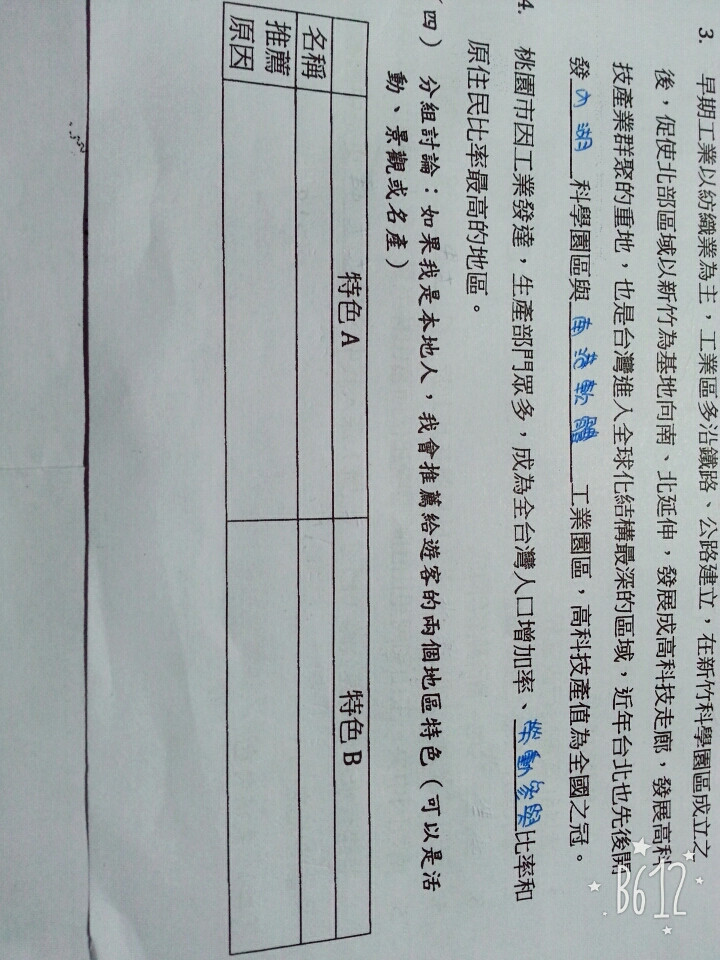 3. 早期工業以紡織業為主，工業區多沿鐵路、公路建立，在新竹科學園區成立之
後，促使北部區域以新竹為基地向南、北延伸，發展成高科技走廊，發展高科
技產業群聚的重地，也是台灣進入全球化結構最深的區域，近年台北也先後開
發內湖科學園區與南港軟體工業園區，高科技產值為全國之冠。
4. 桃園市因工業發達，生產部門眾多，成為全台灣人口增加率、勞動參與比率和
原住民比率最高的地區。
四）分組討論：如果我是本地人，我會推薦給遊客的兩個地區特色（可以是活
動、景觀或名產）
特色 A 特色 B
名稱
推薦
原因
B612